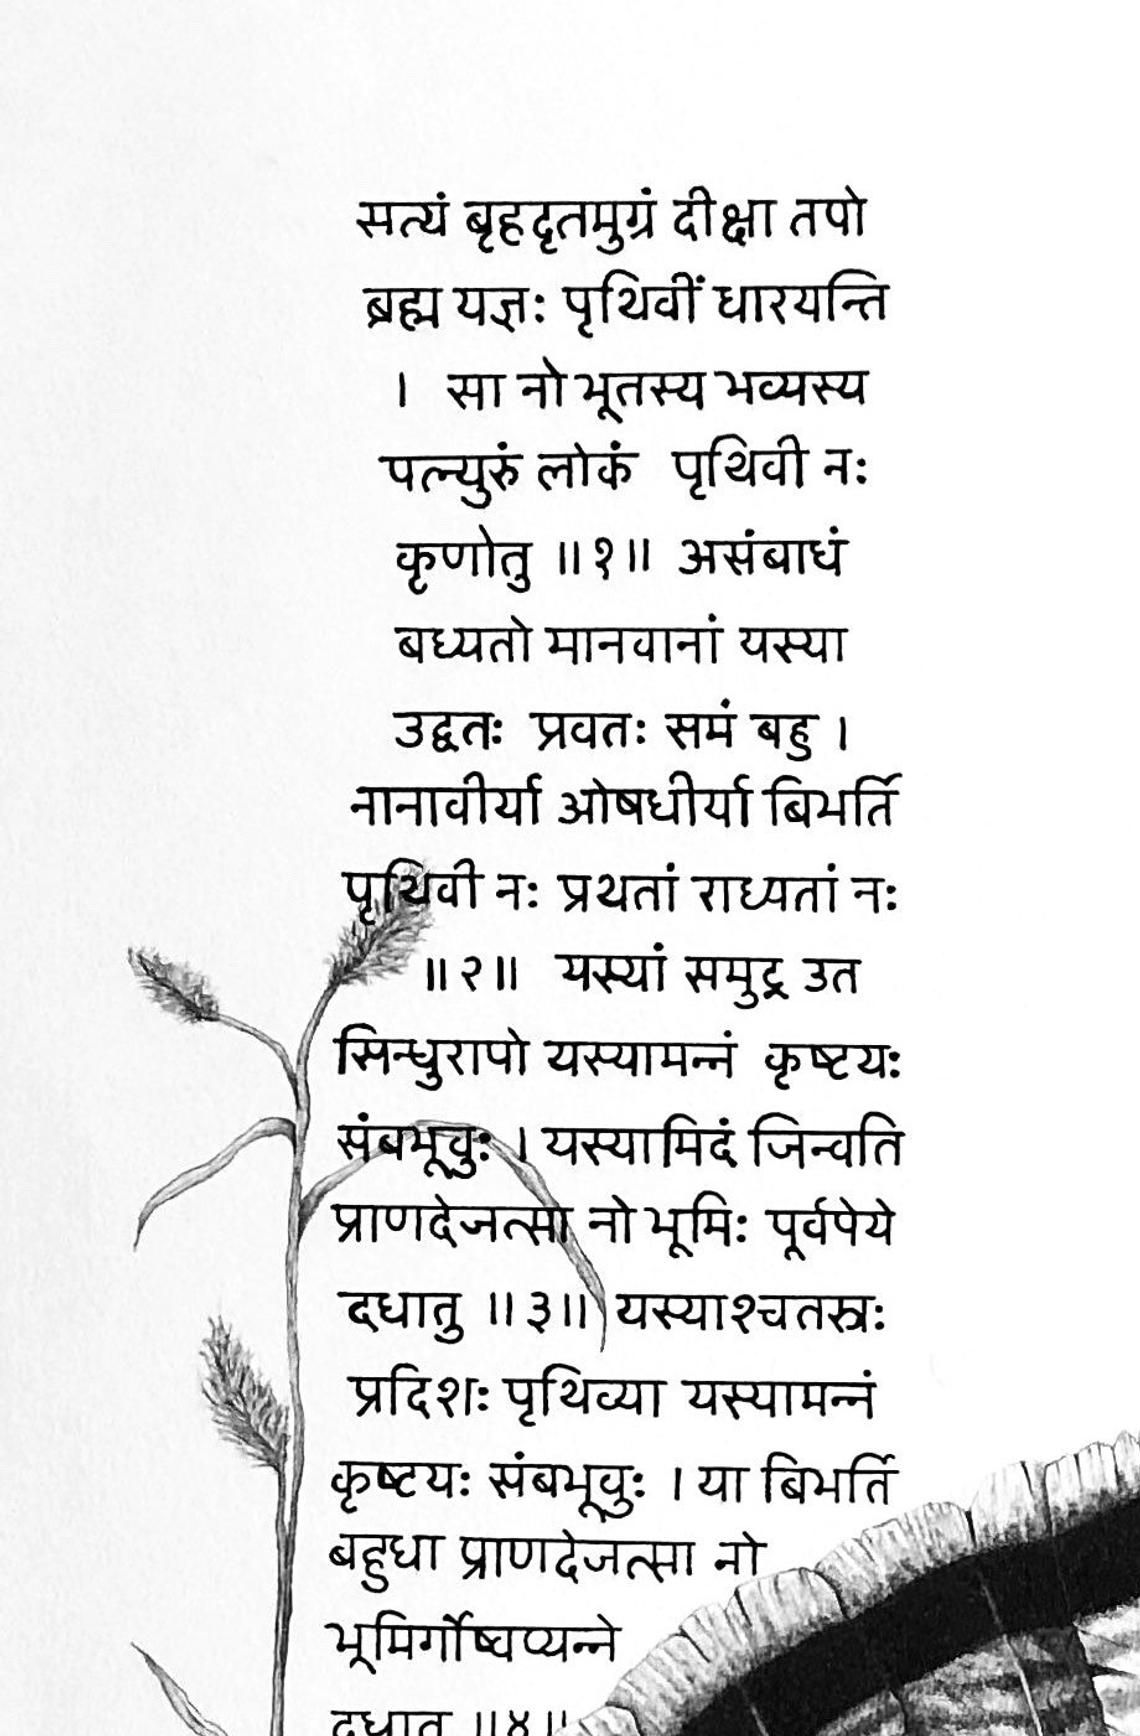 सत्यं बृहदृतमुग्रं दीक्षा तपो
ब्रह्म यज्ञः पृथिवीं धारयन्ति
। सा नो भूतस्य भव्यस्य
पत्न्युरुं लोकं पृथिवी नः
कृणोतु ॥१॥ असंबाधं
बध्यतो मानवानां यस्या
उद्वतः प्रवतः समं बहु ।
नानावीर्या ओषधीर्या बिभर्ति
पृथिवी नः प्रथतां राध्यतां नः
॥२॥ यस्यां समुद्र उत
सिन्धुरापो यस्यामन्नं कृष्टयः
संबभूवुः । यस्यामिदं जिन्वति
प्राणदेजत्सा नो भूमिः पूर्वपेये
दधातु ॥३॥ यस्याश्चतस्रः
प्रदिशः पृथिव्या यस्यामन्नं
कृष्टयः संबभूवुः । या बिभर्ति
बहुधा प्राणदेजत्सा नो
भूमिर्गोष्वप्यन्ने
दधातु ॥४॥